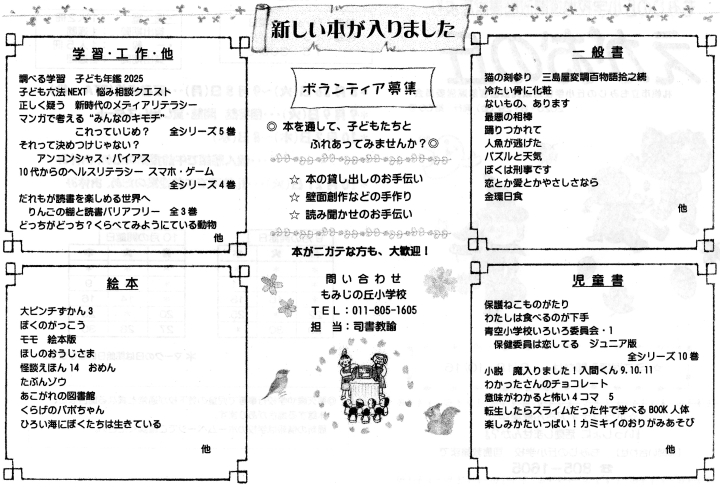 新しい本が入りました
学習・工作・他
調べる学習　子ども年鑑 2025
子ども六法 NEXT　悩み相談クエスト
正しく疑う　新時代のメディアリテラシー
マンガで考える“みんなのキモチ”
これっていじめ？　全シリーズ5巻
それって決めつけじゃない？
アンコンシャス・バイアス
10代からのヘルスリテラシー　スマホ・ゲーム
全シリーズ4巻
だれもが読書を楽しめる世界へ
りんごの棚と読書バリアフリー　全3巻
どっちがどっち？くらべてみようにている動物
他
絵本
大ピンチずかん3
ぼくのがっこう
モモ　絵本版
ほしのおうじさま
怪談えほん 14　おめん
たぶんゾウ
あこがれの図書館
くらげのパポちゃん
ひろい海にぼくたちは生きている
他
ボランティア募集
◎ 本を通して、子どもたちと
ふれあってみませんか？◎
☆ 本の貸し出しのお手伝い
☆ 壁面創作などの手作り
☆ 読み聞かせのお手伝い
本がニガテな方も、大歓迎！
問い合わせ
もみじの丘小学校
TEL：011-805-1605
担　当：司書教諭
一般書
猫の刻参り　三島屋変調百物語拾之続
冷たい骨に化粧
ないもの、あります
最悪の相棒
踊りつかれて
人魚が逃げた
パズルと天気
ぼくは刑事です
恋とか愛とかやさしさなら
金環日食
他
児童書
保護ねこものがたり
わたしは食べるのが下手
青空小学校いろいろ委員会・1
保健委員は恋してる　ジュニア版
全シリーズ10巻
小説　魔入りました！入間くん 9.10.11
わかったさんのチョコレート
意味がわかると怖い4コマ　5
転生したらスライムだった件で学べるBOOK 人体
楽しみかたいっぱい！カミキイのおりがみあそび
他